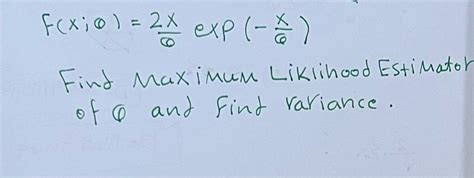 F(x;θ) = 2x/θ exp(-x/θ)
Find Maximum Liklihood Estimator
of θ and find variance.